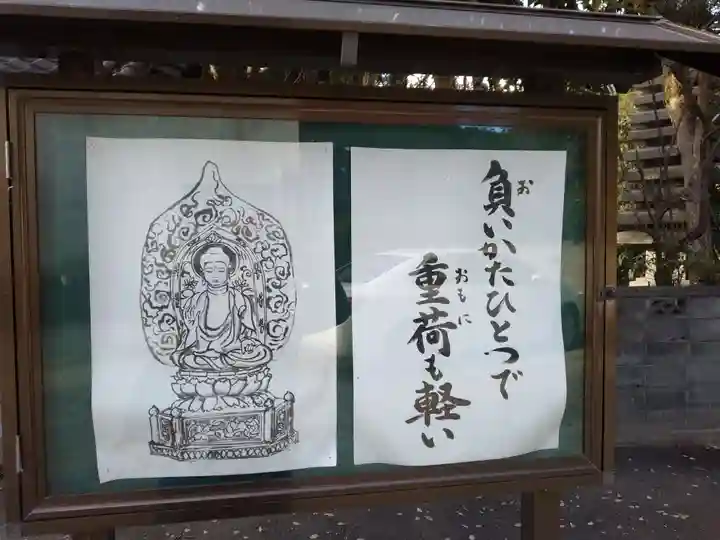 負いかたひとつで
お
重荷も軽い
おもに